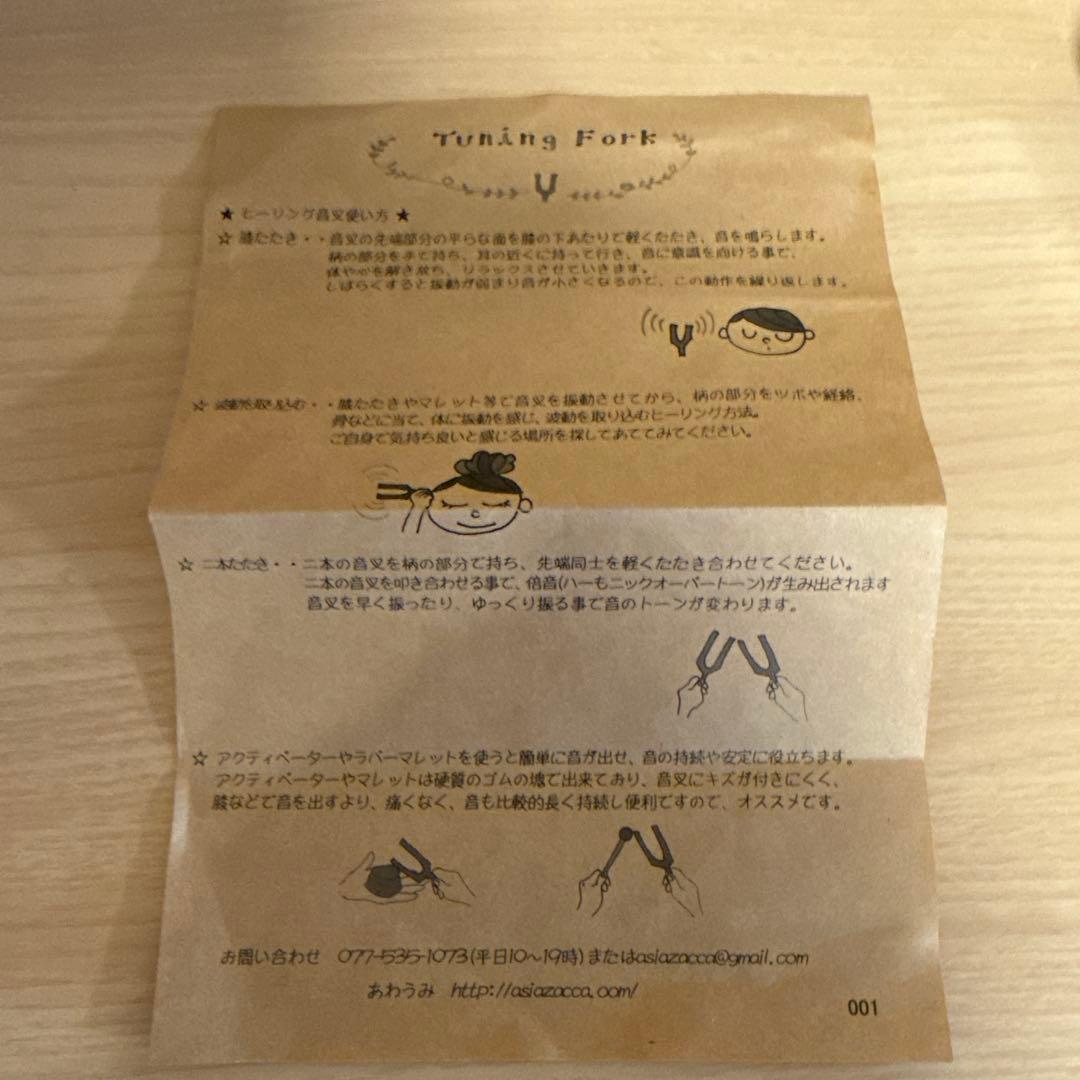 Tuning Fork
★ ヒーリング音叉使い方 ★
☆ 膝たたき・・音叉の先端部分の平らな面を膝の下あたりで軽くたたき、音を鳴らします。
柄の部分を手で持ち、耳の近くに持って行き、音に意識を向ける事で、
体や心を解き放ち、リラックスさせていきます。
しばらくすると振動が弱まり音が小さくなるので、この動作を繰り返します。
☆ 波動を取り込む・・膝たたきやマレット等で音叉を振動させてから、柄の部分をツボや経絡、
骨などに当て、体に振動を感じ、波動を取り込むヒーリング方法。
ご自身で気持ち良いと感じる場所を探してあててみてください。
☆ 二本たたき・・二本の音叉を柄の部分で持ち、先端同士を軽くたたき合わせてください。
二本の音叉を叩き合わせる事で、倍音(ハーモニックオーバートーン)が生み出されます
音叉を早く振ったり、ゆっくり振る事で音のトーンが変わります。
☆ アクティベーターやラバーマレットを使うと簡単に音が出せ、音の持続や安定に役立ちます。
アクティベーターやマレットは硬質のゴムの塊で出来ており、音叉にキズが付きにくく、
膝などで音を出すより、痛くなく、音も比較的長く持続し便利ですので、オススメです。
お問い合わせ 077-535-1073(平日10〜19時)またはasiazacca@gmail.com
あわうみ http://asiazacca.com/
001